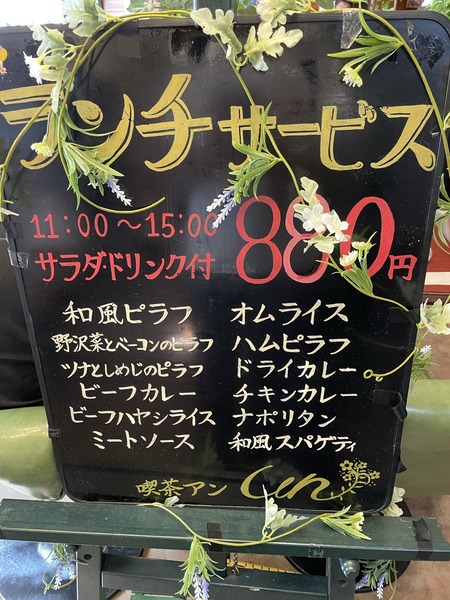 ランチサービス
11:00～15:00
サラダ・ドリンク付
880円
和風ピラフ
野沢菜とベーコンのピラフ
ツナとしめじのピラフ
ビーフカレー
ビーフハヤシライス
ミートソース
オムライス
ハムピラフ
ドライカレー
チキンカレー
ナポリタン
和風スパゲティ
喫茶アン Un